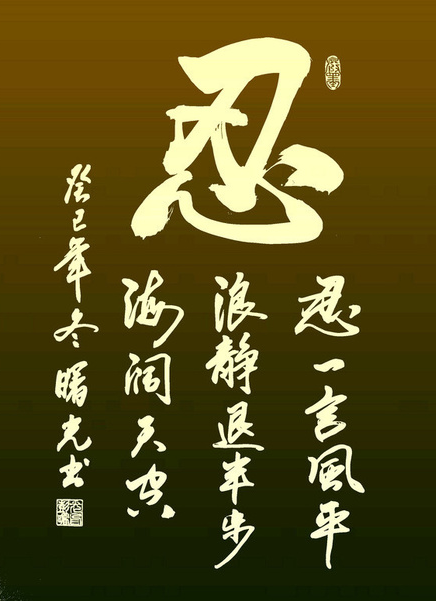 忍
忍一言風平
浪静退半步
海阔天空
癸巳年冬曙光书